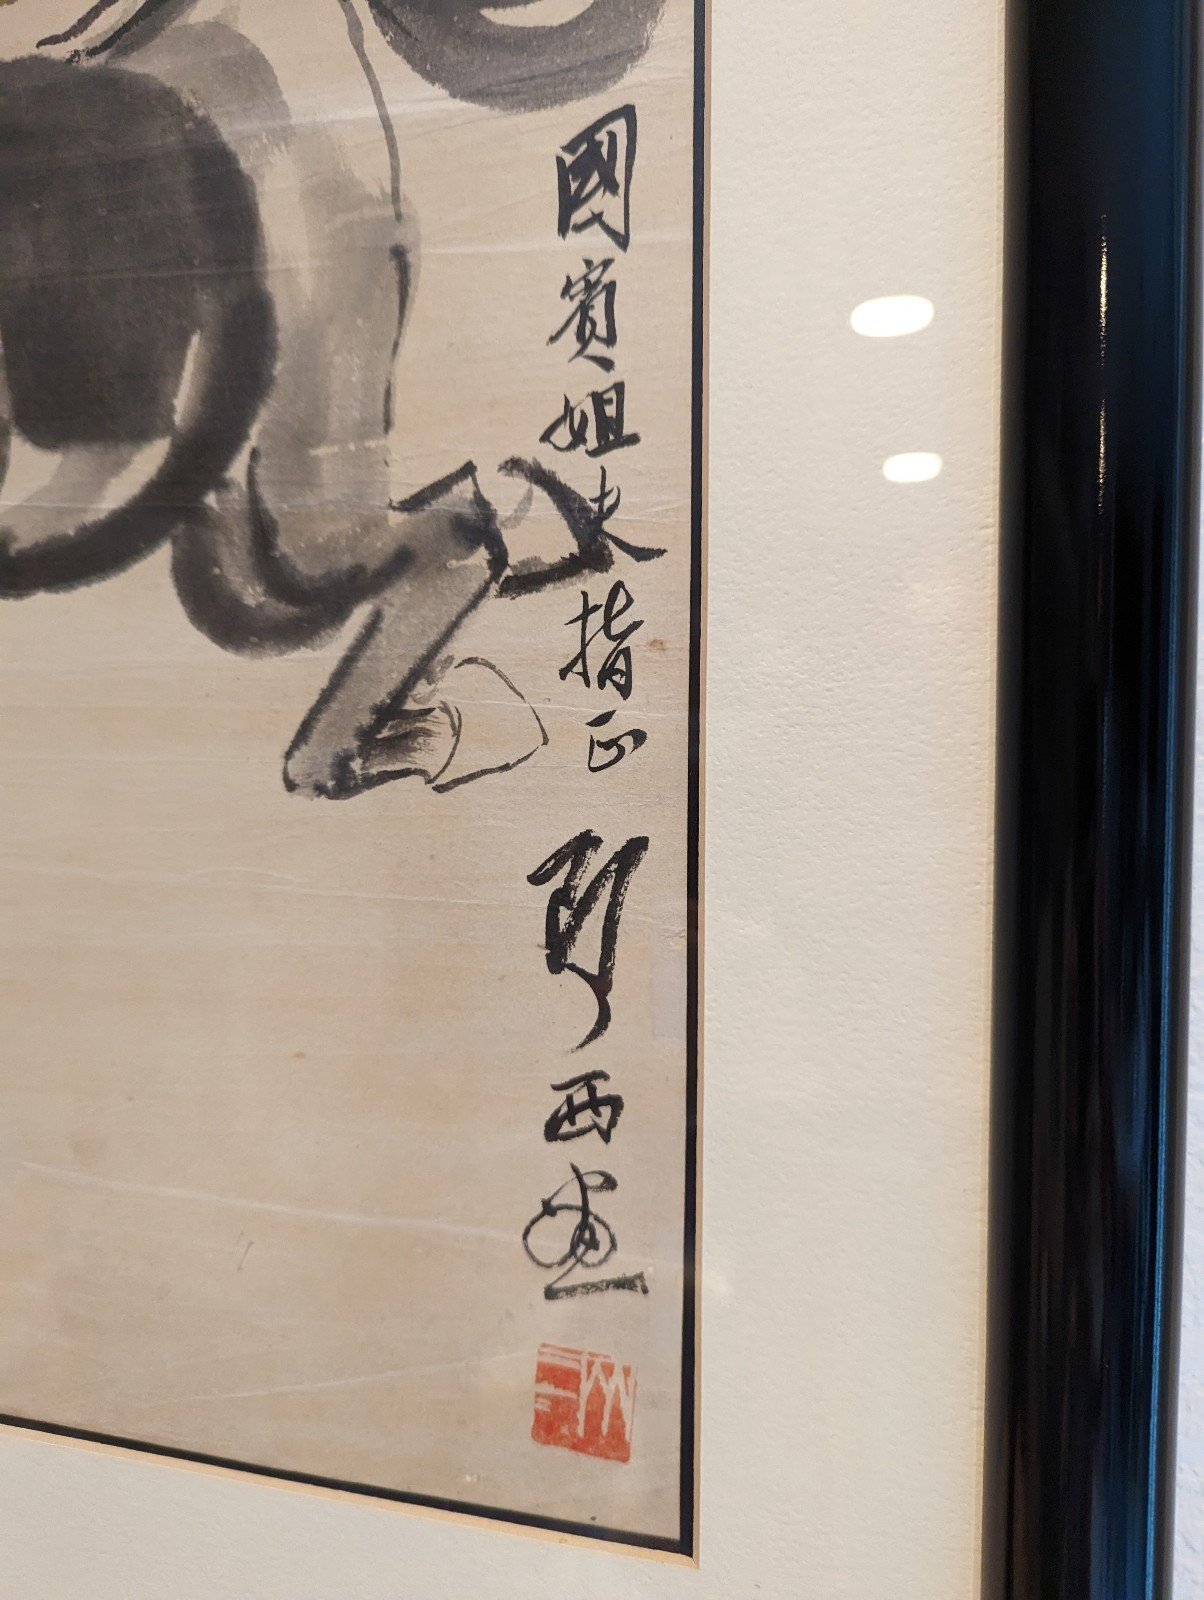 國賓姐夫指正
西畫